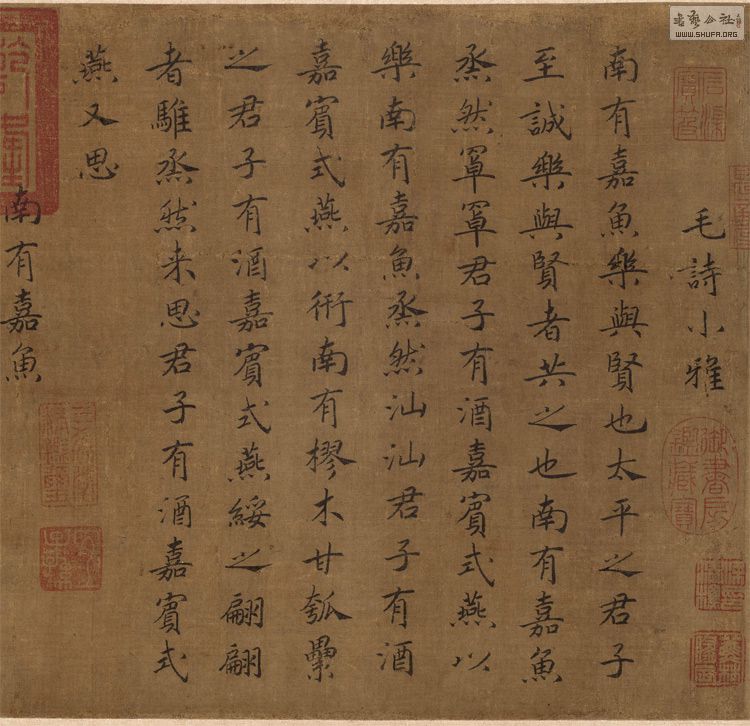 毛詩小雅
南有嘉魚樂與賢也太平之君子
至誠樂與賢者共之也南有嘉魚
烝然罩罩君子有酒嘉賓式燕以
樂南有嘉魚烝然汕汕君子有酒
嘉賓式燕以衎南有樛木甘瓠纍
之君子有酒嘉賓式燕綏之翩翩
者騅烝然来思君子有酒嘉賓式
燕又思
南有嘉魚
御書房鑑藏寶
WWW.SHUFA.ORG